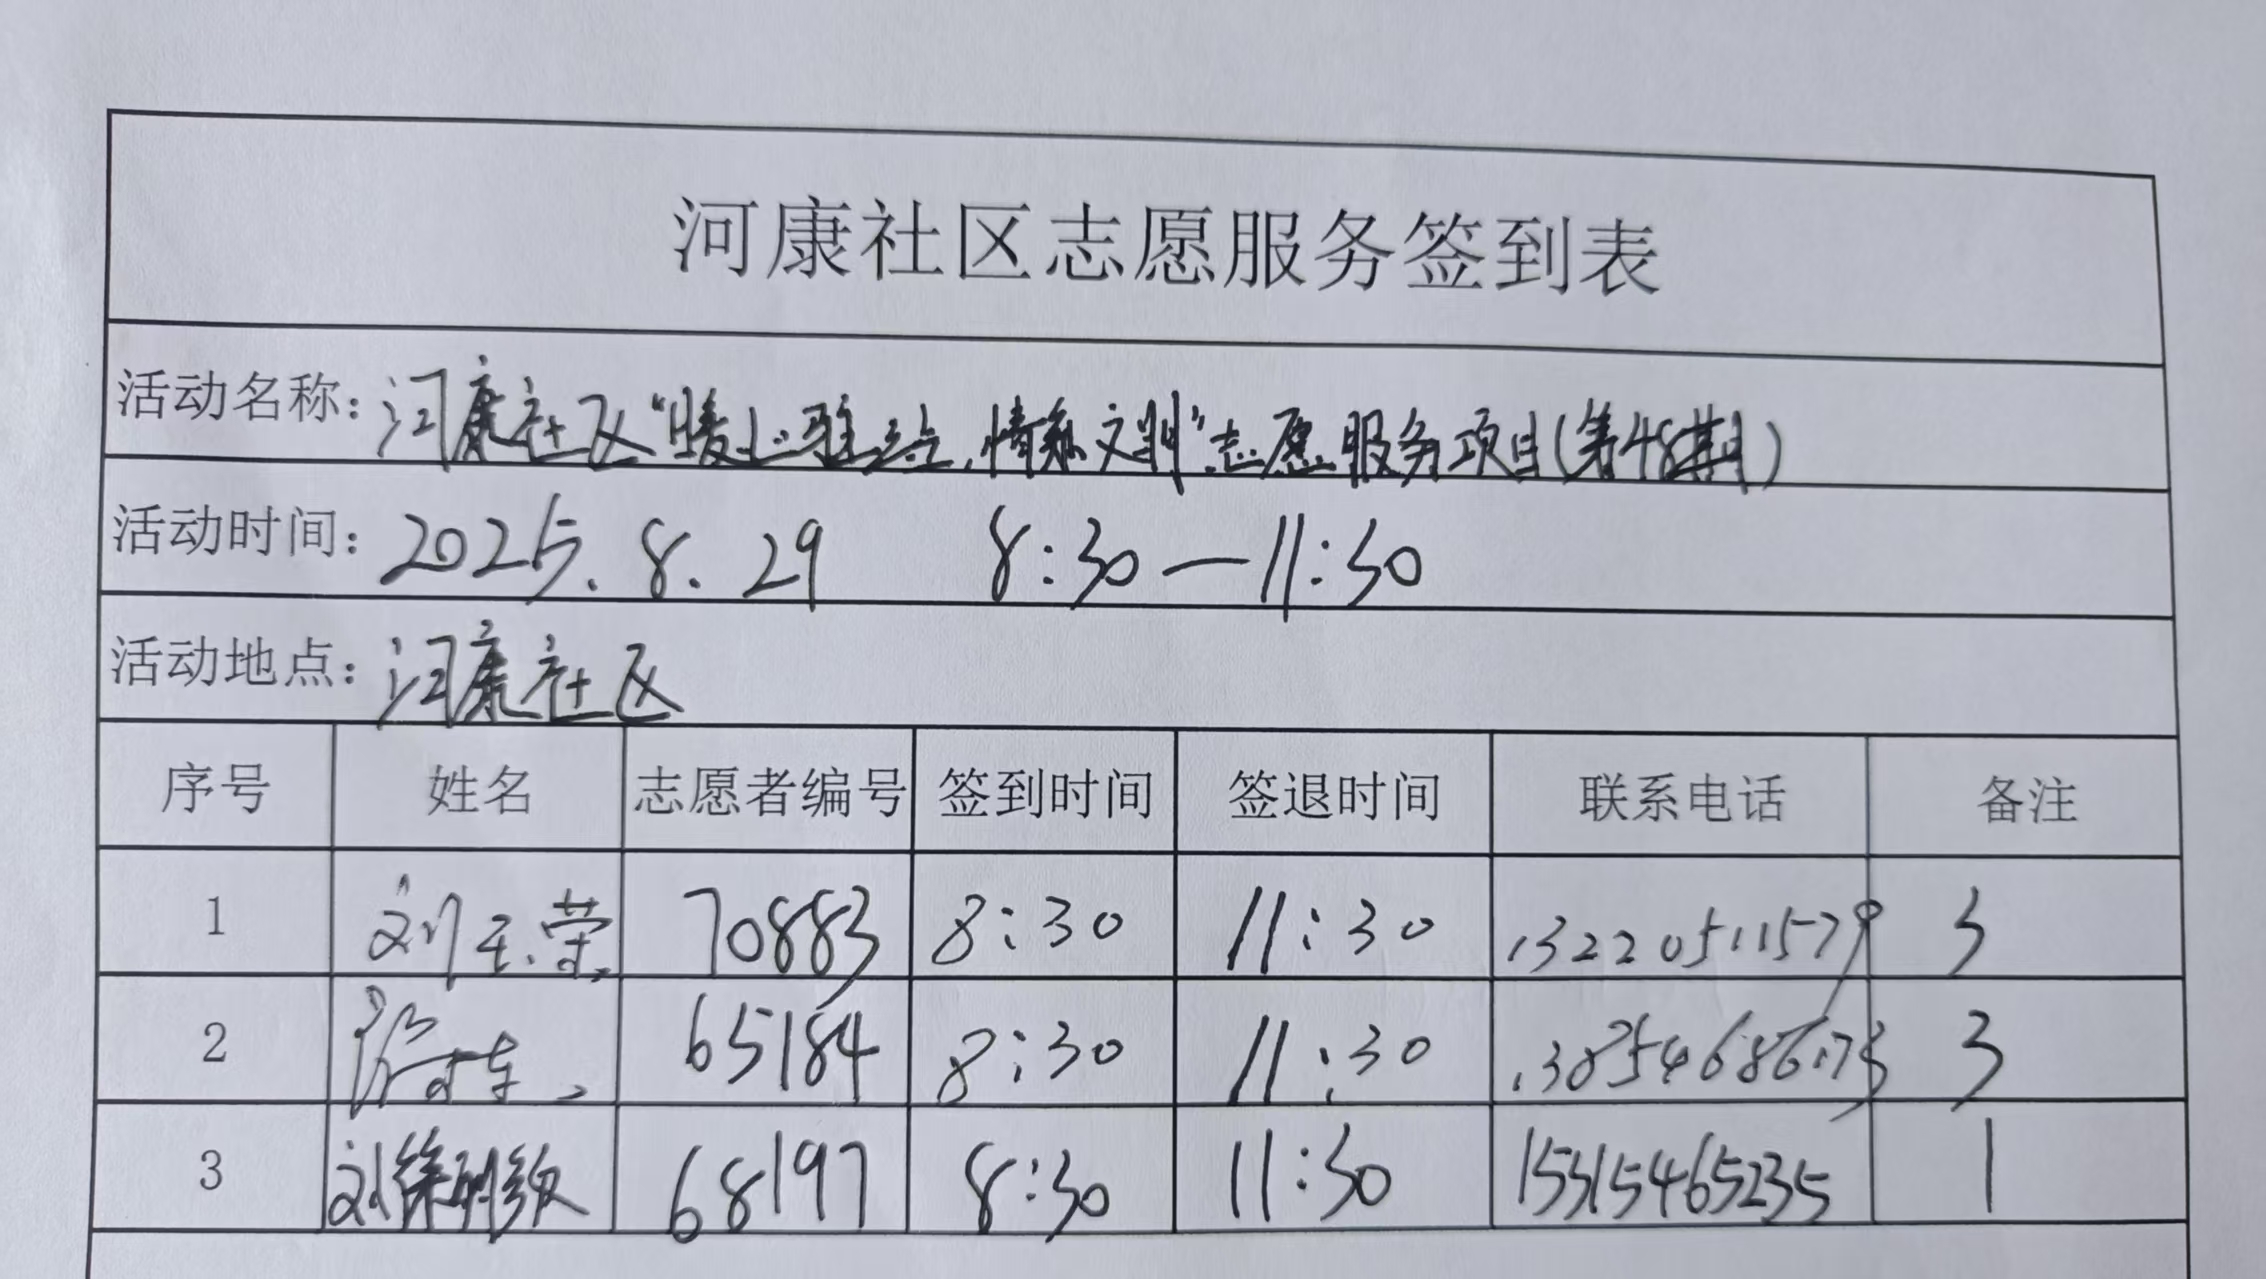 河康社区志愿服务签到表
活动名称：河康社区“暖心驿站，情系文明”志愿服务项目（第48期）
活动时间：2025.8.29 8:30—11:30
活动地点：河康社区
序号 姓名 志愿者编号 签到时间 签退时间 联系电话 备注
1 刘玉荣 70883 8:30 11:30 13220511579 3
2 65184 8:30 11:30 13854686173 3
3 刘 68197 8:30 11:30 15315465235 1